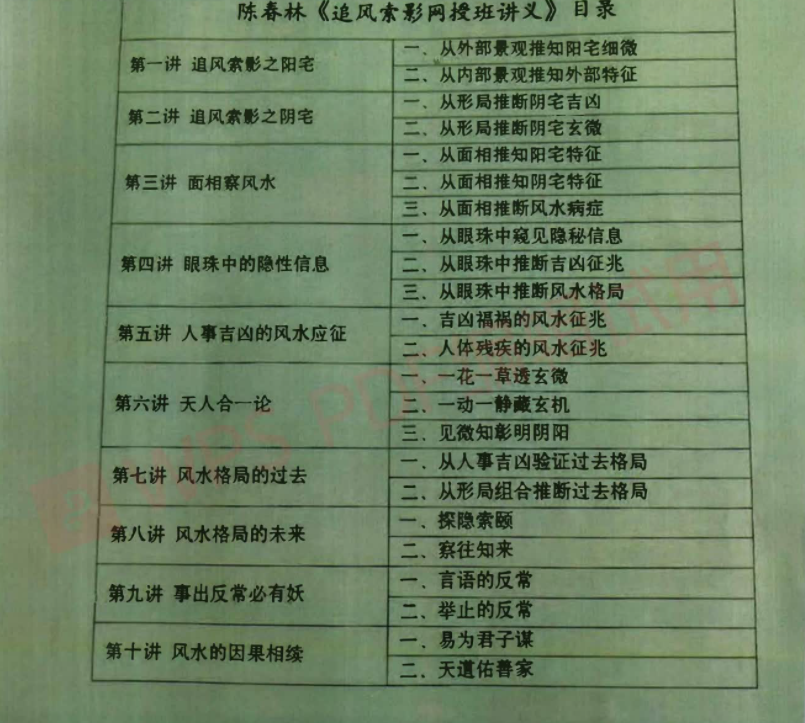 陈春林《追风索影网授班讲义》目录
第一讲 追风索影之阳宅
一、从外部景观推知阳宅细微
二、从内部景观推知外部特征
第二讲 追风索影之阴宅
一、从形局推断阴宅吉凶
二、从形局推断阴宅玄微
第三讲 面相察风水
一、从面相推知阳宅特征
二、从面相推知阴宅特征
三、从面相推断风水病症
第四讲 眼珠中的隐性信息
一、从眼珠中窥见隐秘信息
二、从眼珠中推断吉凶征兆
三、从眼珠中推断风水格局
第五讲 人事吉凶的风水应征
一、吉凶福祸的风水征兆
二、人体残疾的风水征兆
第六讲 天人合一论
一、一花一草透玄微
二、一动一静藏玄机
三、见微知彰明阴阳
第七讲 风水格局的过去
一、从人事吉凶验证过去格局
二、从形局组合推断过去格局
第八讲 风水格局的未来
一、探隐索颐
二、察往知来
第九讲 事出反常必有妖
一、言语的反常
二、举止的反常
第十讲 风水的因果相续
一、易为君子谋
二、天道佑善家
WPS PDF 试用